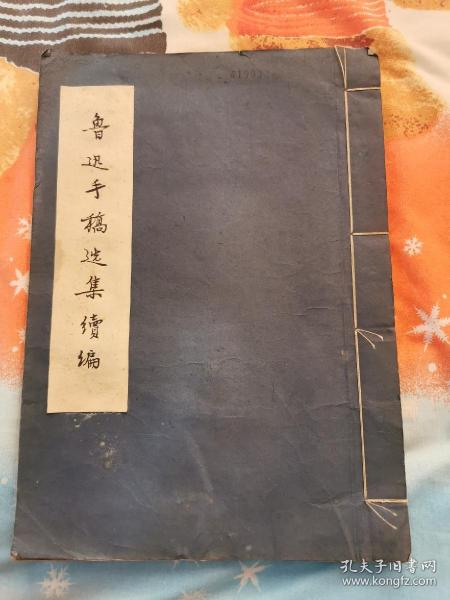 魯迅手稿选集續编
孔夫子旧书网
www.kongfz.com